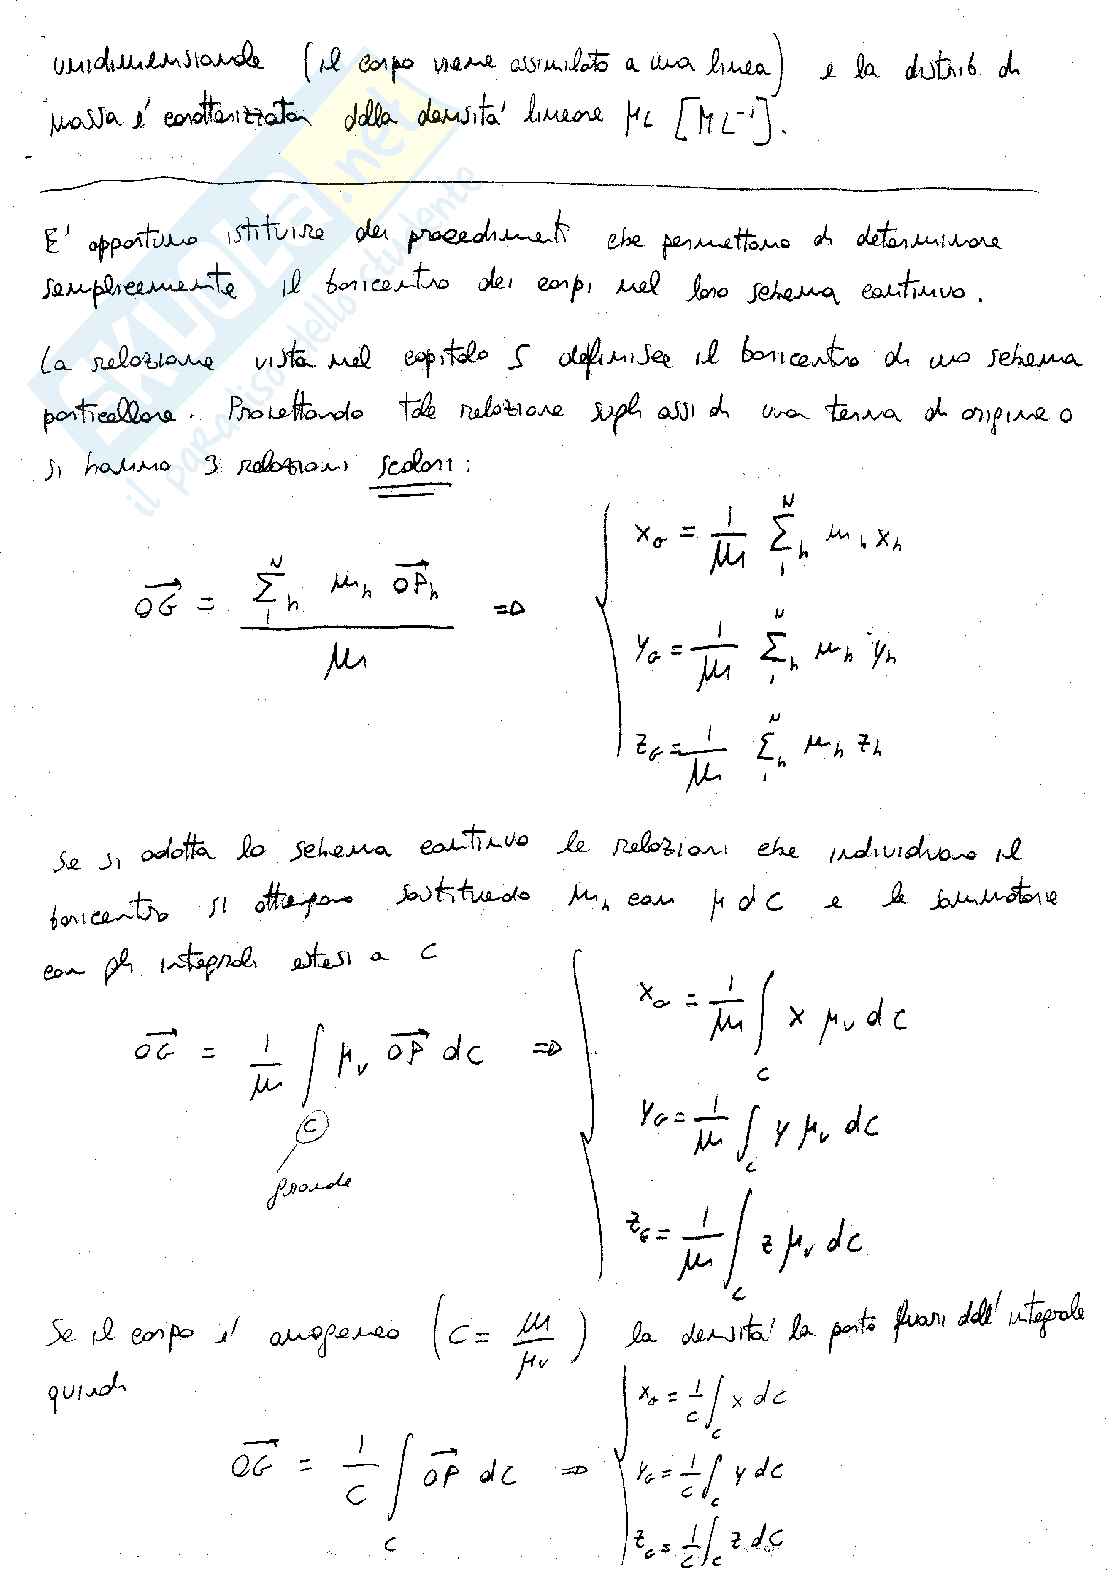 unidimensionale (il corpo viene assimilato a una linea) e la distrib di
massa e' caratterizzata dalla densita' lineare μL [ML⁻¹].
E' opportuno istituire dei procedimenti che permettano di determinare
semplicemente il baricentro dei corpi nel loro schema continuo.
La relazione vista nel capitolo 5 definisce il baricentro di uno schema
particellare. Proiettando tale relazione sugli assi di una terna di origine O
si hanno 3 relazioni scalari:
OG = Σ₁ᴺₕ mₕ OPₕ / m ⇒
x_G = 1/m Σ₁ᴺₕ mₕ xₕ
y_G = 1/m Σ₁ᴺₕ mₕ yₕ
z_G = 1/m Σ₁ᴺₕ mₕ zₕ
Se si adotta lo schema continuo le relazioni che individuano il
baricentro si ottengono sostituendo mₕ con μ dC e le sommatorie
con gli integrali estesi a C
OG = 1/m ∫_C μᵥ OP dC ⇒
grande
x_G = 1/m ∫_C x μᵥ dC
y_G = 1/m ∫_C y μᵥ dC
z_G = 1/m ∫_C z μᵥ dC
Se il corpo e' omogeneo (C = m/μᵥ) la densita' la porto fuori dall'integrale
quindi
OG = 1/C ∫_C OP dC ⇒
x_G = 1/C ∫_C x dC
y_G = 1/C ∫_C y dC
z_G = 1/C ∫_C z dC
SKUOLA.net
il paradiso dello studente